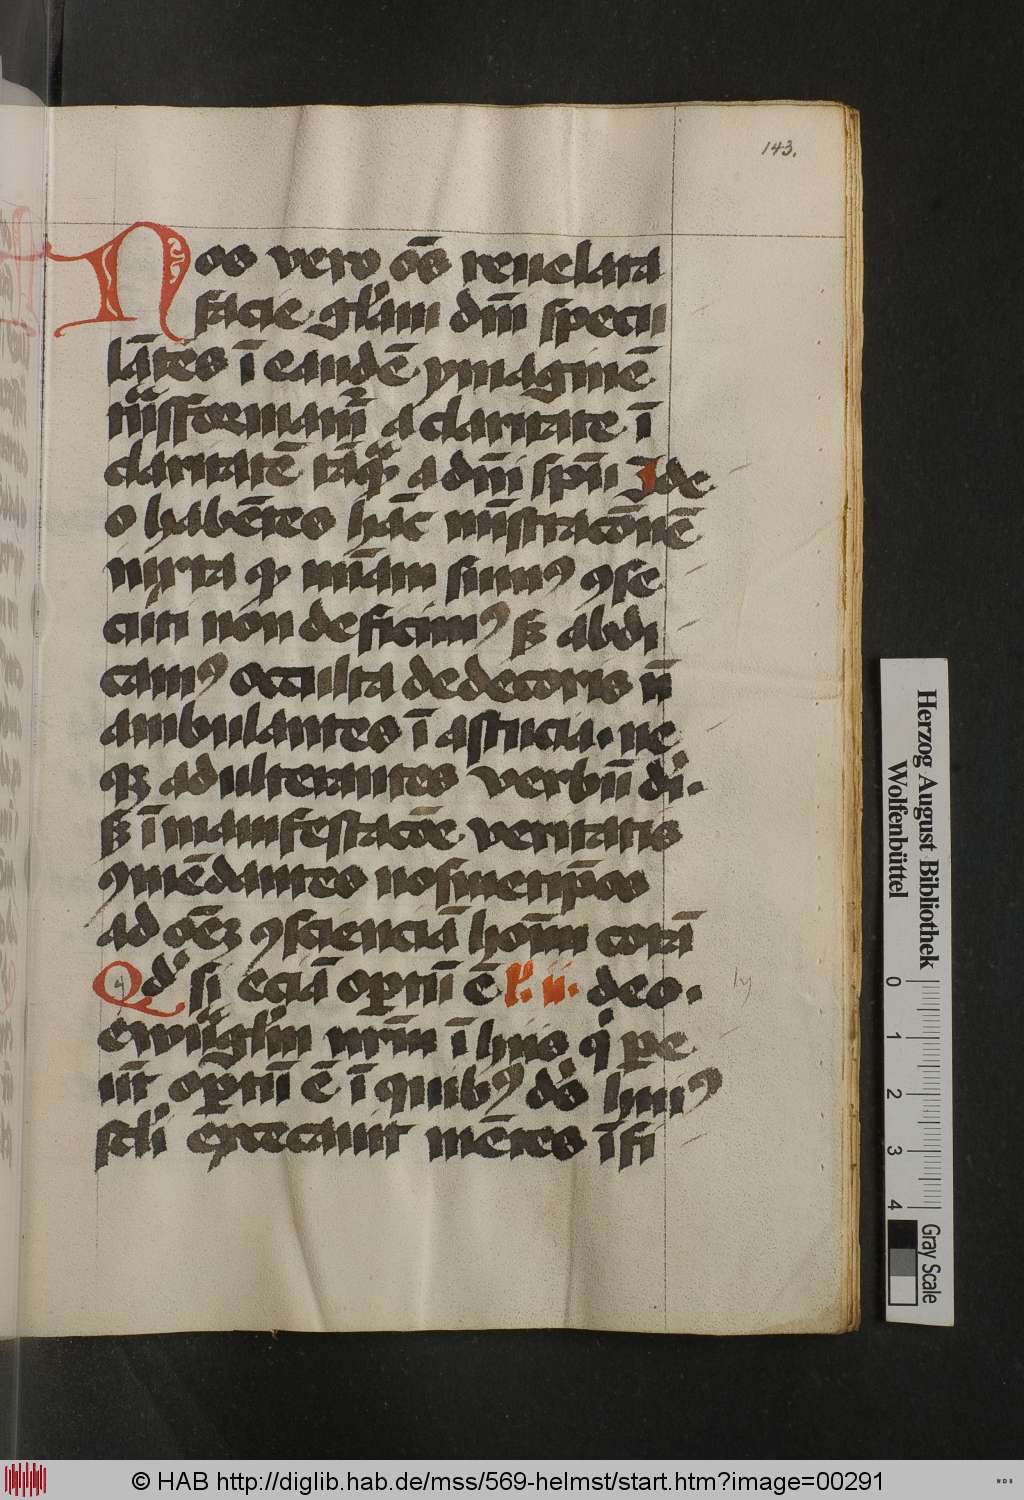 143.
Nos vero om̄s reuelata
facie gl̄iam dn̄i specu
lātes ī eandē ymaginē
tn̄sformam̄ a claritate ī
claritatē tāqͣ a dn̄i spū Ide
o habētes hāc mīstracōnē
iuxta qꝫ mīam sumꝰ ꝯse
cuti non deficimꝰ sꝫ abdi
camꝰ occulta dedecoris n̄
ambulantes ī astucia · ne
qꝫ adulterantes verbū dī ·
sꝫ ī manifestacōe veritatis
ꝯmēdantes nosmetip̄os
ad om̄ē ꝯscienciā hoīm corā
Qd̓ si eciā optū ē deo ·
ewāgliū nr̄m ī hiis q̓ pe
ūt optū ē ī quibꝰ dꝰ huiꝰ
scl̓i excecauit mētes īfi
Herzog August Bibliothek
Wolfenbüttel
0 1 2 3 4
Gray Scale
© HAB http://diglib.hab.de/mss/569-helmst/start.htm?image=00291